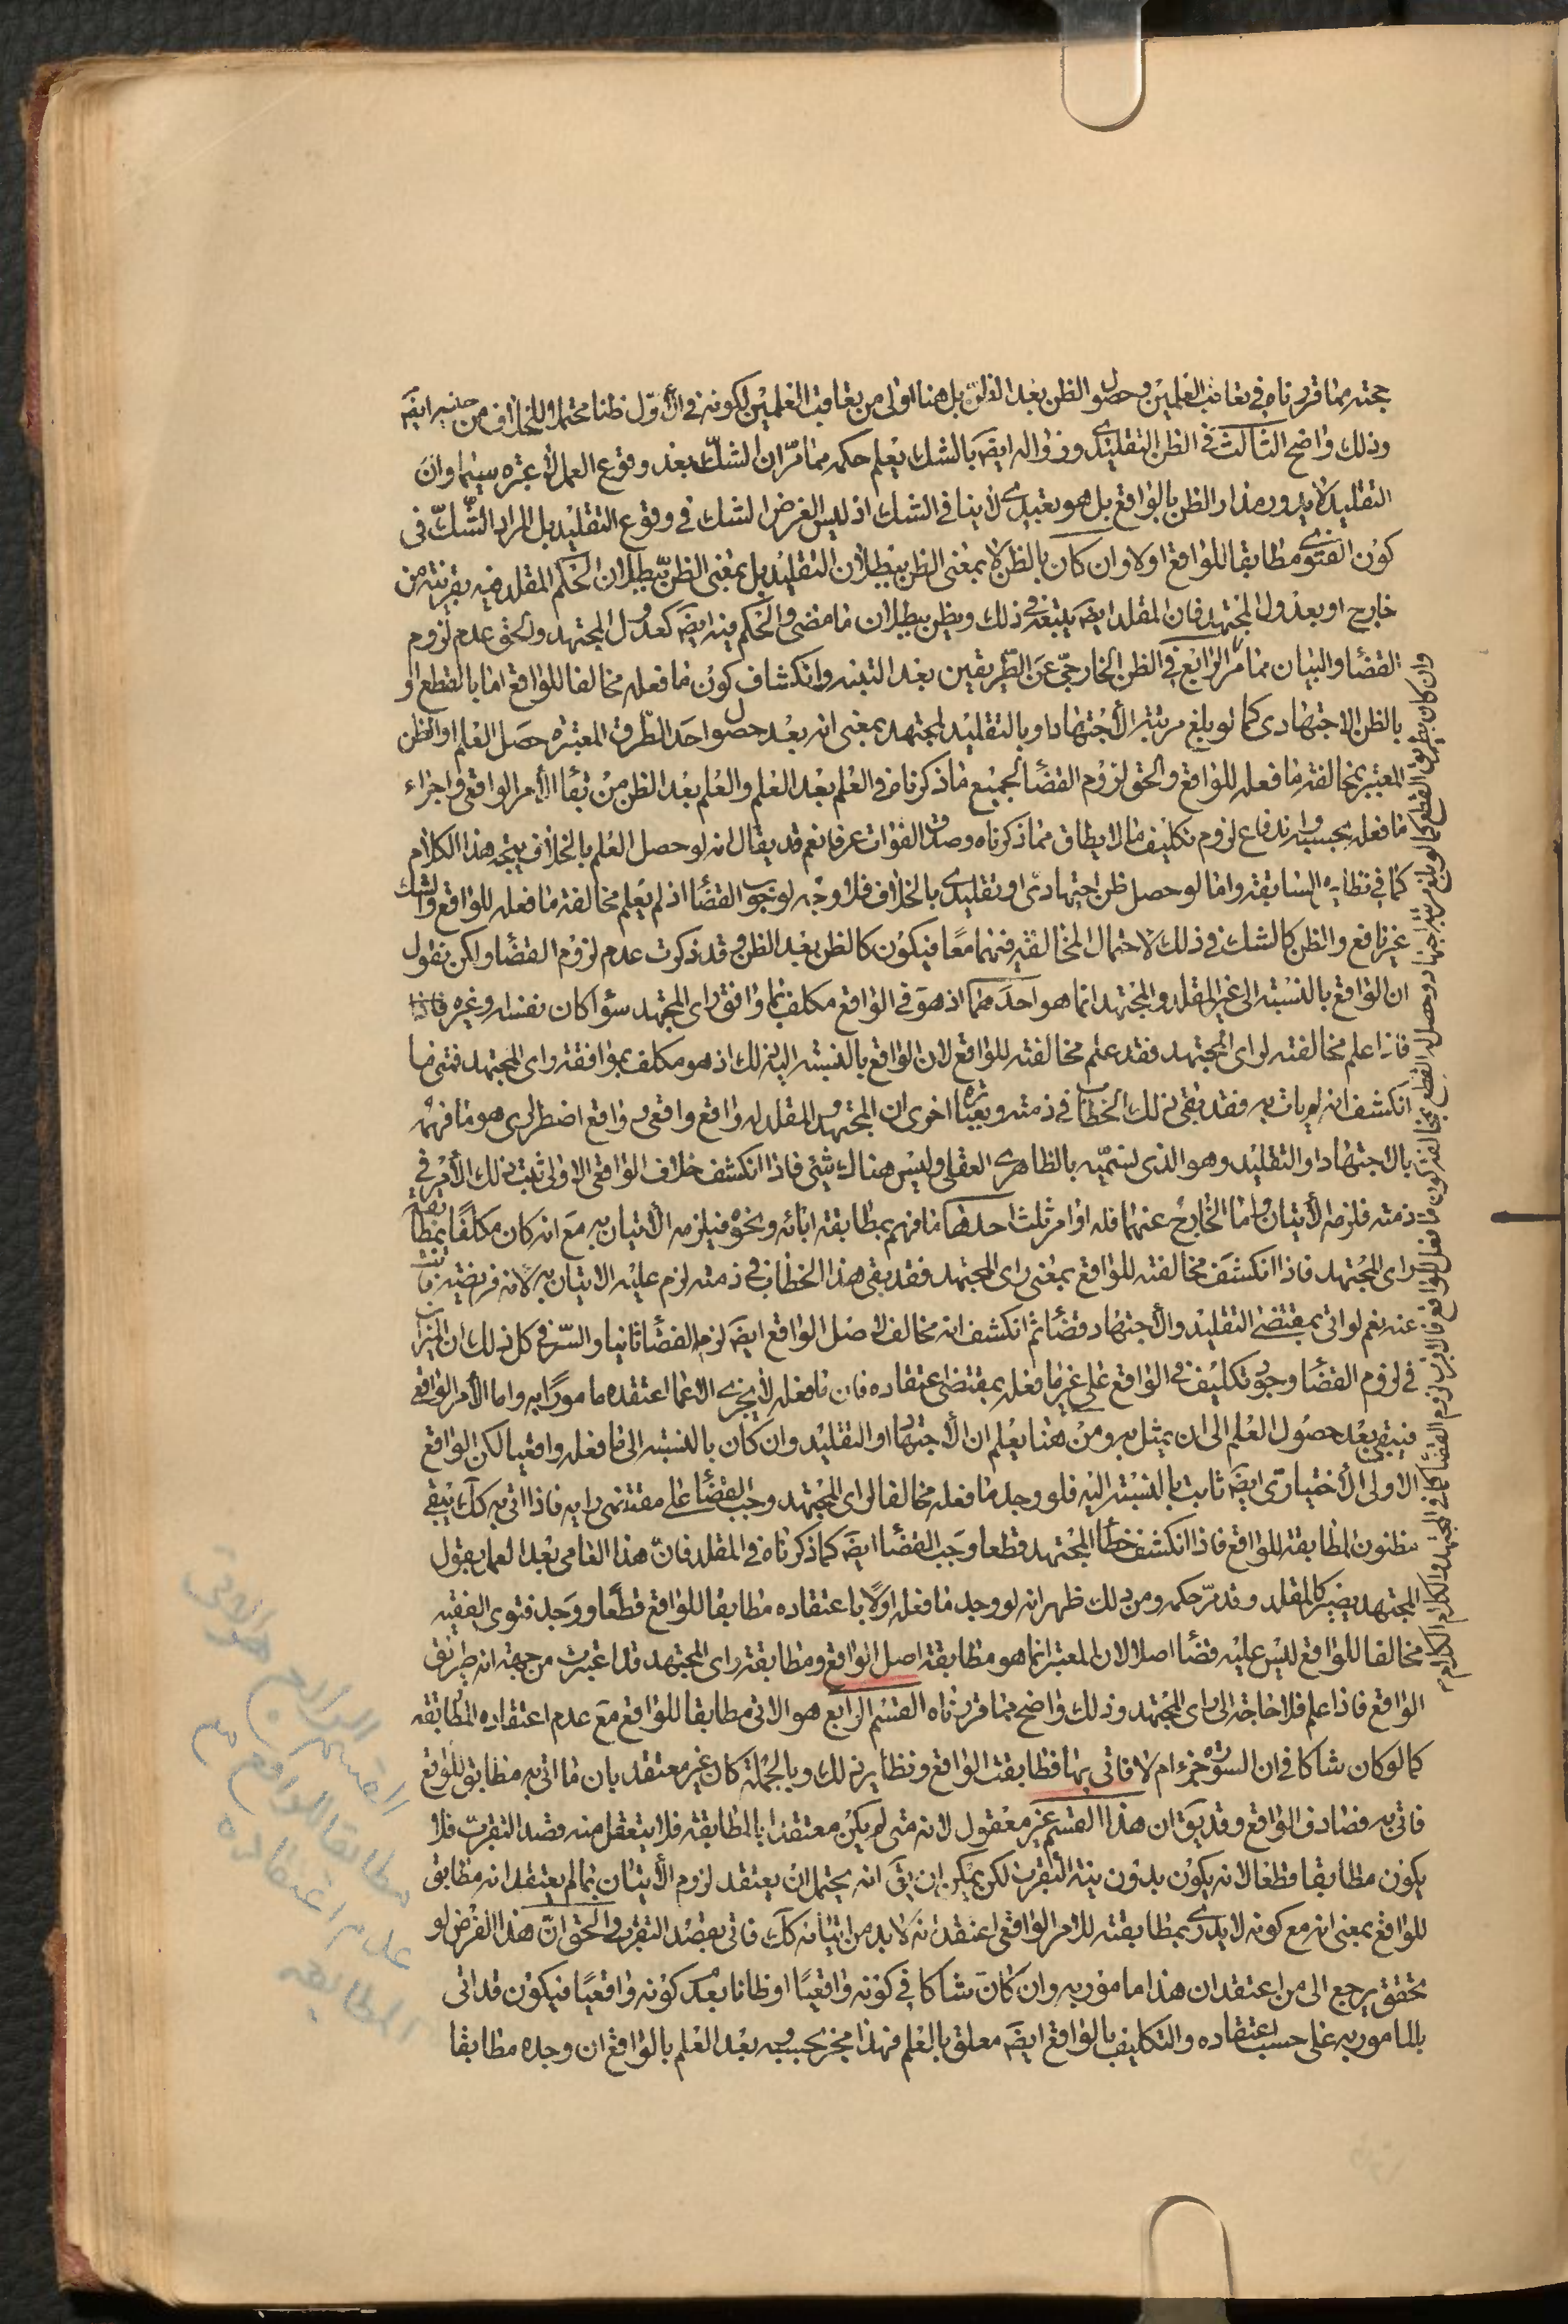 حجته مما قررناه في تعاقب العلمين وحصول الظن بعد الظن بل هنا اولى من تعاقب العلمين لكونه في الأول ظنا محتملا للخلاف من حينه ايضَ
وذلك واضح الثالث في الظن التقليدي وزواله ايضَ بالشك يعلم حكمه مما مرّ ان الشكّ بعد وقوع العمل لا عبرة سيما وان
التقليد لا يدور مدار الظن بالواقع بل هو تعبدي لا ينافي الشك اذ ليس الغرض الشك في وقوع التقليد بل المراد الشّكّ في
كون الفتوى مطابقا للواقع اولا وان كان بالظن لا بمعنى الظن ببطلان التقليد بل بمعنى الظن ببطلان الحكم المقلد فيه بقرينة من
خارج او بعدول المجتهد فان المقلد ايضَ يتبعه في ذلك ويظن ببطلان ما مضى والحكم فيه ايضَ كعدول المجتهد والحق عدم لزوم
القضاء والبيان مما مرّ الرابع في الظن الخارجيّ عن الطّريقين بعد التبينه وانكشاف كون ما فعله مخالفا للواقع اما بالقطع او
بالظن الاجتهادي كما لو بلغ مرتبة الأجتهاد او بالتقليد لمجتهد بمعنى انه بعد حصول احد الطّرق المعتبرة حصل العلم او الظن
المعتبر بمخالفة ما فعله للواقع والحق لزوم القضاء لجميع ما ذكرناه في العلم بعد العلم والعلم بعد الظن من بقاء الأمر الواقعي واجزاء
ما فعله بحسبه واندفاع لزوم تكليف ما لا يطاق مما ذكرناه وصدق الفوات عرفا نعم قد يقال انه لو حصل العلم بالخلاف يتجه هذا الكلام
كما في نظايره السابقة واما لو حصل ظن اجتهاديّ او تقليدي بالخلاف فلا وجه لوجوب القضاء اذ لم يعلم مخالفة ما فعله للواقع والشك
غير نافع والظن كالشك في ذلك لاحتمال المخالفة فيهما معًا فيكون كالظن بعد الظن وقد ذكرت عدم لزوم القضاء ولكن نقول
ان الواقع بالنسبة الى غير المقلد والمجتهد انما هو احد هما اذ هو في الواقع مكلف بما وافق راى المجتهد سواء كان نفسه او غيره فاذا
فاذا علم مخالفته لراى المجتهد فقد علم مخالفته للواقع لان الواقع بالنسبة اليه ذلك اذ هو مكلف بموافقة راى المجتهد فمتى ما
انكشف انه لم يات به فقد بقي ذلك الخطاب في ذمته وبعبارة اخرى ان المجتهد والمقلد له واقع واقعي وواقع اضطراري هو ما فهمه
بالاجتهاد او التقليد وهو الذي نسميه بالظاهري العقلي وليس هناك شئ فاذا انكشف خلاف الواقعي الاولى ثبت ذلك الأمر في
ذمته فلزمه الأتيان واما الخارج عنهما فله اوامر ثلثة احدها ما فهم بمطابقة ابائه ونحوه فيلزمه الأتيان به مع انه كان مكلفًا بمطابقة
راى المجتهد فاذا انكشف مخالفته للواقع بمعنى راى المجتهد فقد بقى هذا الخطاب في ذمته لزم عليه الاتيان به لانه فريضة فاتت
عنه نعم لو اتى بمقتضى التقليد والأجتهاد قضاء ثم انكشف انه مخالف لاصل الواقع ايضَ لزم القضاء ثانيا والسّر في كل ذلك ان الميزان
في لزوم القضاء وجود تكليف في الواقع على غير ما فعله بمقتضى اعتقاده فان ما فعله لا يجزي الا عما اعتقده مامورًا به واما الأمر الواقعي
فيبقى بعد حصول العلم الى ان يمثل به ومن هنا يعلم ان الأجتهاد او التقليد وان كان بالنسبة الى ما فعله واقعيا لكن الواقع
الاولى الأختياريّ ايضَ ثابت بالنسبة اليه فلو وجد ما فعله مخالفا لراى المجتهد وجب القضاء على مقتضى رايه فاذا اتى به كك يبقى
مظنون المطابقة للواقع فاذا انكشف خطاء المجتهد قطعا وجب القضاء ايضَ كما ذكرناه في المقلد فانّ هذا العامي بعد العمل بقول
المجتهد يصير كالمقلد وقد مرّ حكمه ومن ذلك ظهر انه لو وجد ما فعله اولًا باعتقاده مطابقا للواقع قطعًا ووجد فتوى الفقيه
مخالفا للواقع ليس عليه قضاء اصلا لان المعتبر انما هو مطابقة اصل الواقع ومطابقة راى المجتهد قد اعتبرت من جهة انه طريق
الواقع فاذا علم فلا حاجة الى راى المجتهد وذلك واضح مما قررناه القسم الرابع هو الاتى مطابقا للواقع مع عدم اعتقاده المطابقة
كما لو كان شاكا في ان السورة جزء ام لا فاتى بها فطابقت الواقع ونظاير ذلك وبالجملة كان غير معتقد بان ما اتى به مطابق للواقع
فاتى به فصادف الواقع وقد يقَ ان هذا القسم غير معقول لانه متى لم يكن معتقدا بالمطابقة فلا يتعقل منه قصد التقرب فلا
يكون مطابقا قطعا لانه يكون بدون نية التقرب لكن يمكن ان يقَ انه يحتمل ان يعتقد لزوم الأتيان بما لم يعتقد انه مطابق
للواقع بمعنى انه مع كونه لا يدري بمطابقته للامر الواقعي اعتقد انه لا بد من اتيانه كك فاتى بقصد التقرب والحق انّ هذا الفرض لو
تحقق يرجع الى من اعتقد ان هذا مامور به وان كان شاكا في كونه واقعيًا او ظانا بعدم كونه واقعيًا فيكون قد اتى
بالمامور به على حسب اعتقاده والتكليف بالواقع ايضَ معلق بالعلم فهذا مجز بحسبه وبعد العلم بالواقع ان وجده مطابقا
وان كان بطريق القطع كما لو بلغ مرتبة اجتهاد وحصل له القطع بمخالفة كون ما فعل للواقع فالاقرب لزوم القضاء كما في المجتهد والكلام الكلام
القسم الرابع هو الاتى
مطابقا للواقع مع
عدم اعتقاده
المطابقة